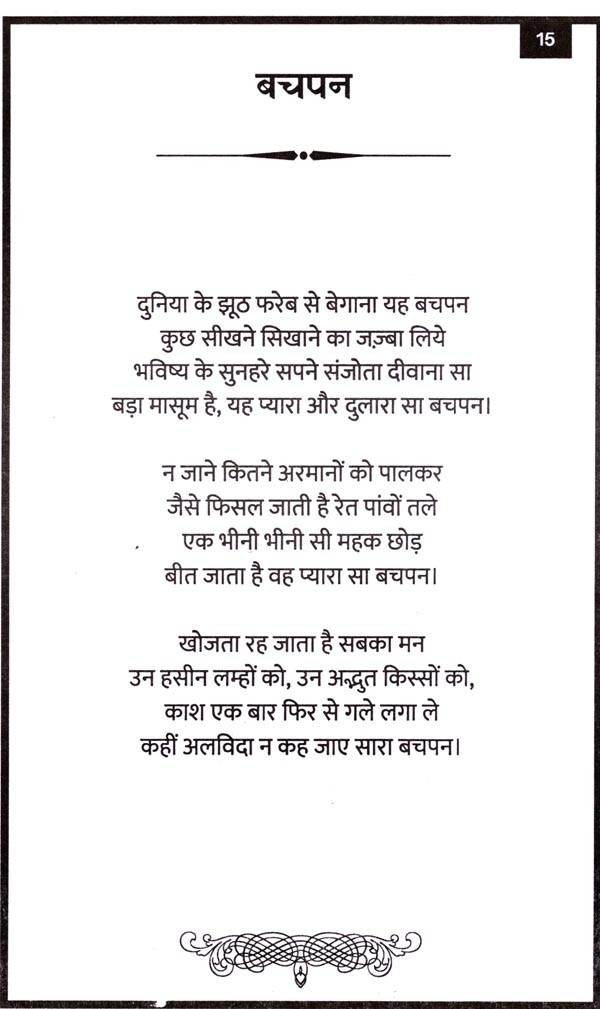 15
बचपन
दुनिया के झूठ फरेब से बेगाना यह बचपन
कुछ सीखने सिखाने का जज़्बा लिये
भविष्य के सुनहरे सपने संजोता दीवाना सा
बड़ा मासूम है, यह प्यारा और दुलारा सा बचपन।
न जाने कितने अरमानों को पालकर
जैसे फिसल जाती है रेत पांवों तले
एक भीनी भीनी सी महक छोड़
बीत जाता है वह प्यारा सा बचपन।
खोजता रह जाता है सबका मन
उन हसीन लम्हों को, उन अद्भुत किस्सों को,
काश एक बार फिर से गले लगा ले
कहीं अलविदा न कह जाए सारा बचपन।